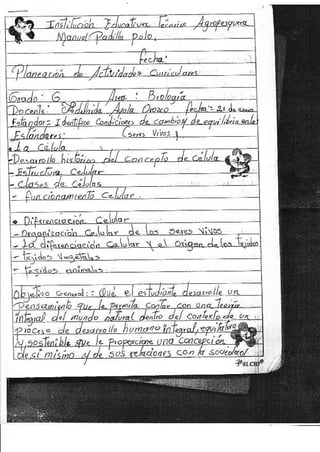 Institución Educativa Técnica Agropecuaria
Manuel Padilla Polo.
fecha:
Planeación de Actividades Curriculares
Grado: 6 Area: Biología
Docente: Ayola Orozco fecha = 21 de enero
Estándar = Identifico Condiciones de cambio y de equilibrio en los
Estándares: (seres vivos)
• La Célula
- Desarrollo histórico del concepto de célula
- Estructura Celular
- Clases de Células
- funcionamiento Celular.
• Diferenciación Celular
- Organización Celular de los Seres Vivos
- La diferenciación Celular y el Origen de los tejidos
- tejidos vegetales
- tejidos animales
Objetivo General: : Qué el estudiante desarrolle un
Pensamiento que le permita Contar con una teoría
integral del mundo natural dentro del contexto de un
Proceso de desarrollo humano integral, equitativo
y sostenible que le proporcione una concepción
de sí mismo y de sus relaciones con la sociedad